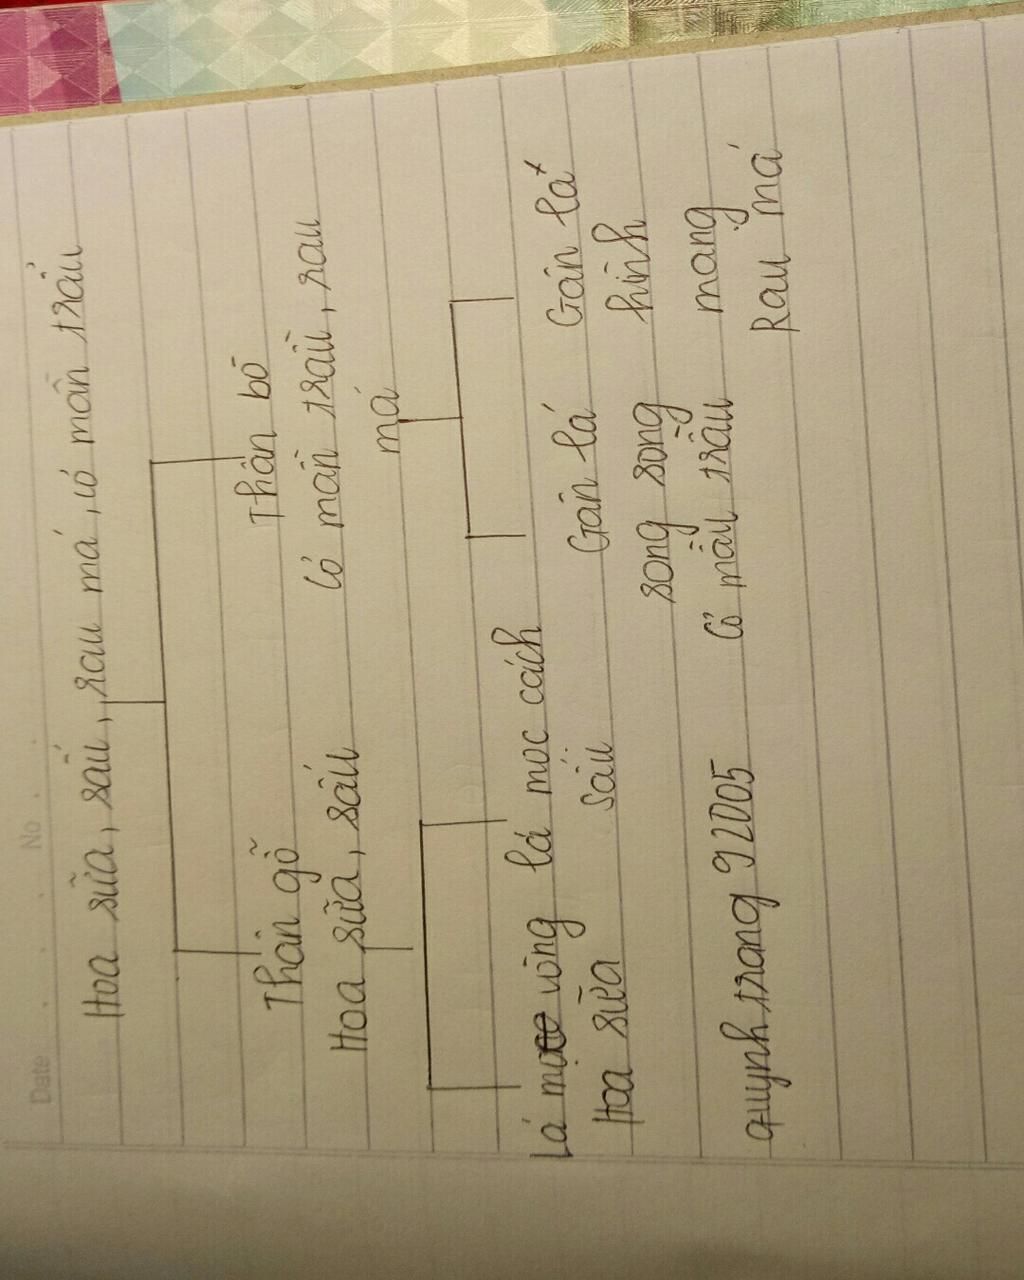 Date No
Hoa sữa, sấu, rau má, cỏ mần trầu
Thân gỗ
Thân bò
Hoa sữa, sấu
Cỏ mần trầu, rau
má
Lá mọc vòng
Hoa sữa
lá mọc cách
Sấu
Gân lá
song song
Cỏ mần trầu
Gân lá
hình
mạng
Rau má
quynhtrang92005